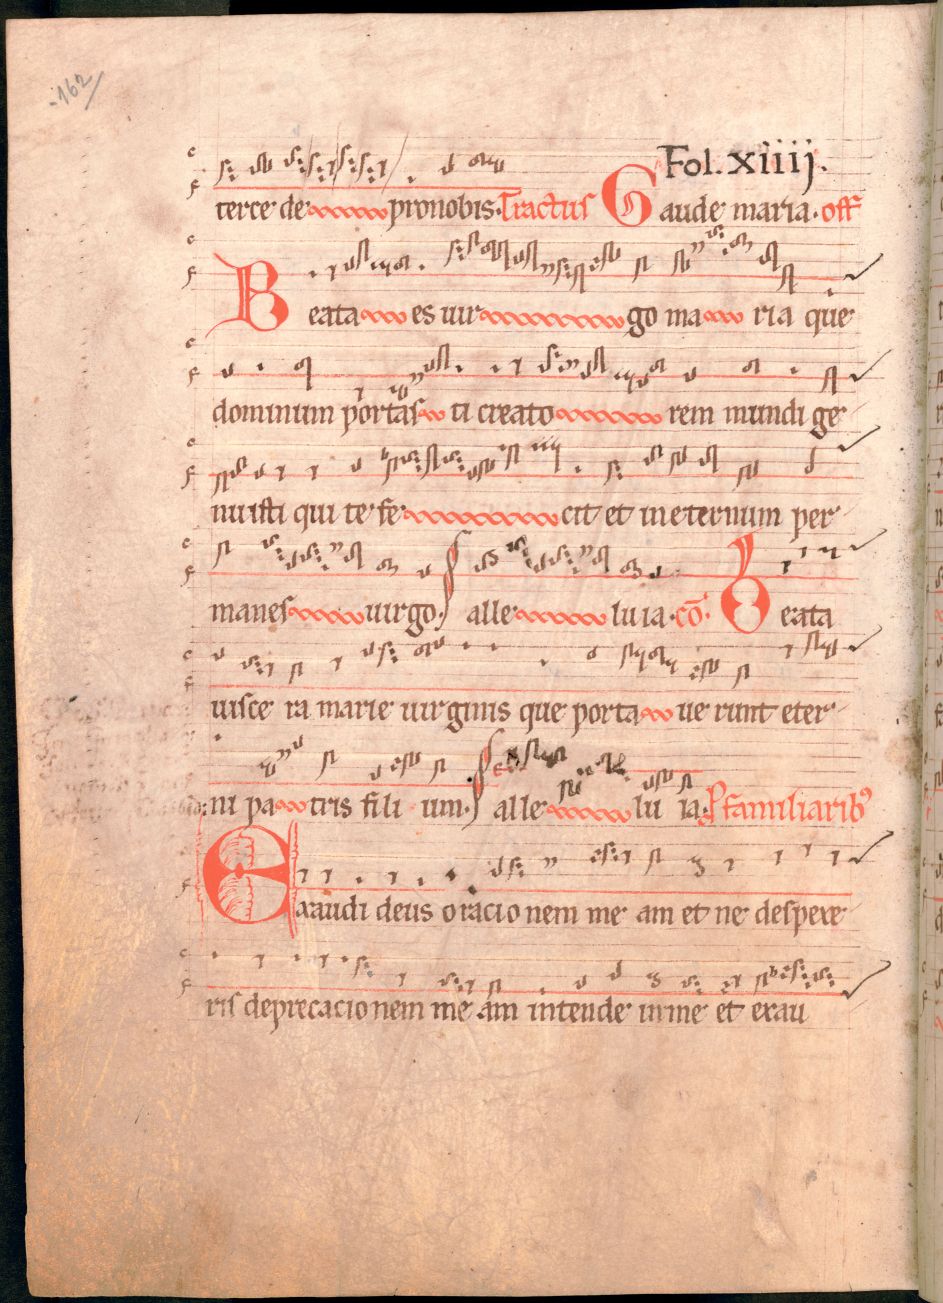 -162/
Fol. xiiij.
terce de pro nobis. Tractus Gaude maria. off
Beata es uir go ma ria que
dominum portas ti creato rem mundi ge
nuisti qui te fe cit et in eternum per
manes uirgo. alle luia. cō. Beata
uisce ra marie uirginis que porta ue runt eter
ni pa tris fili um. alle lu ia. familiarib9
Exaudi deus oracionem me am et ne despexe
ris deprecacionem me am intende in me et exau